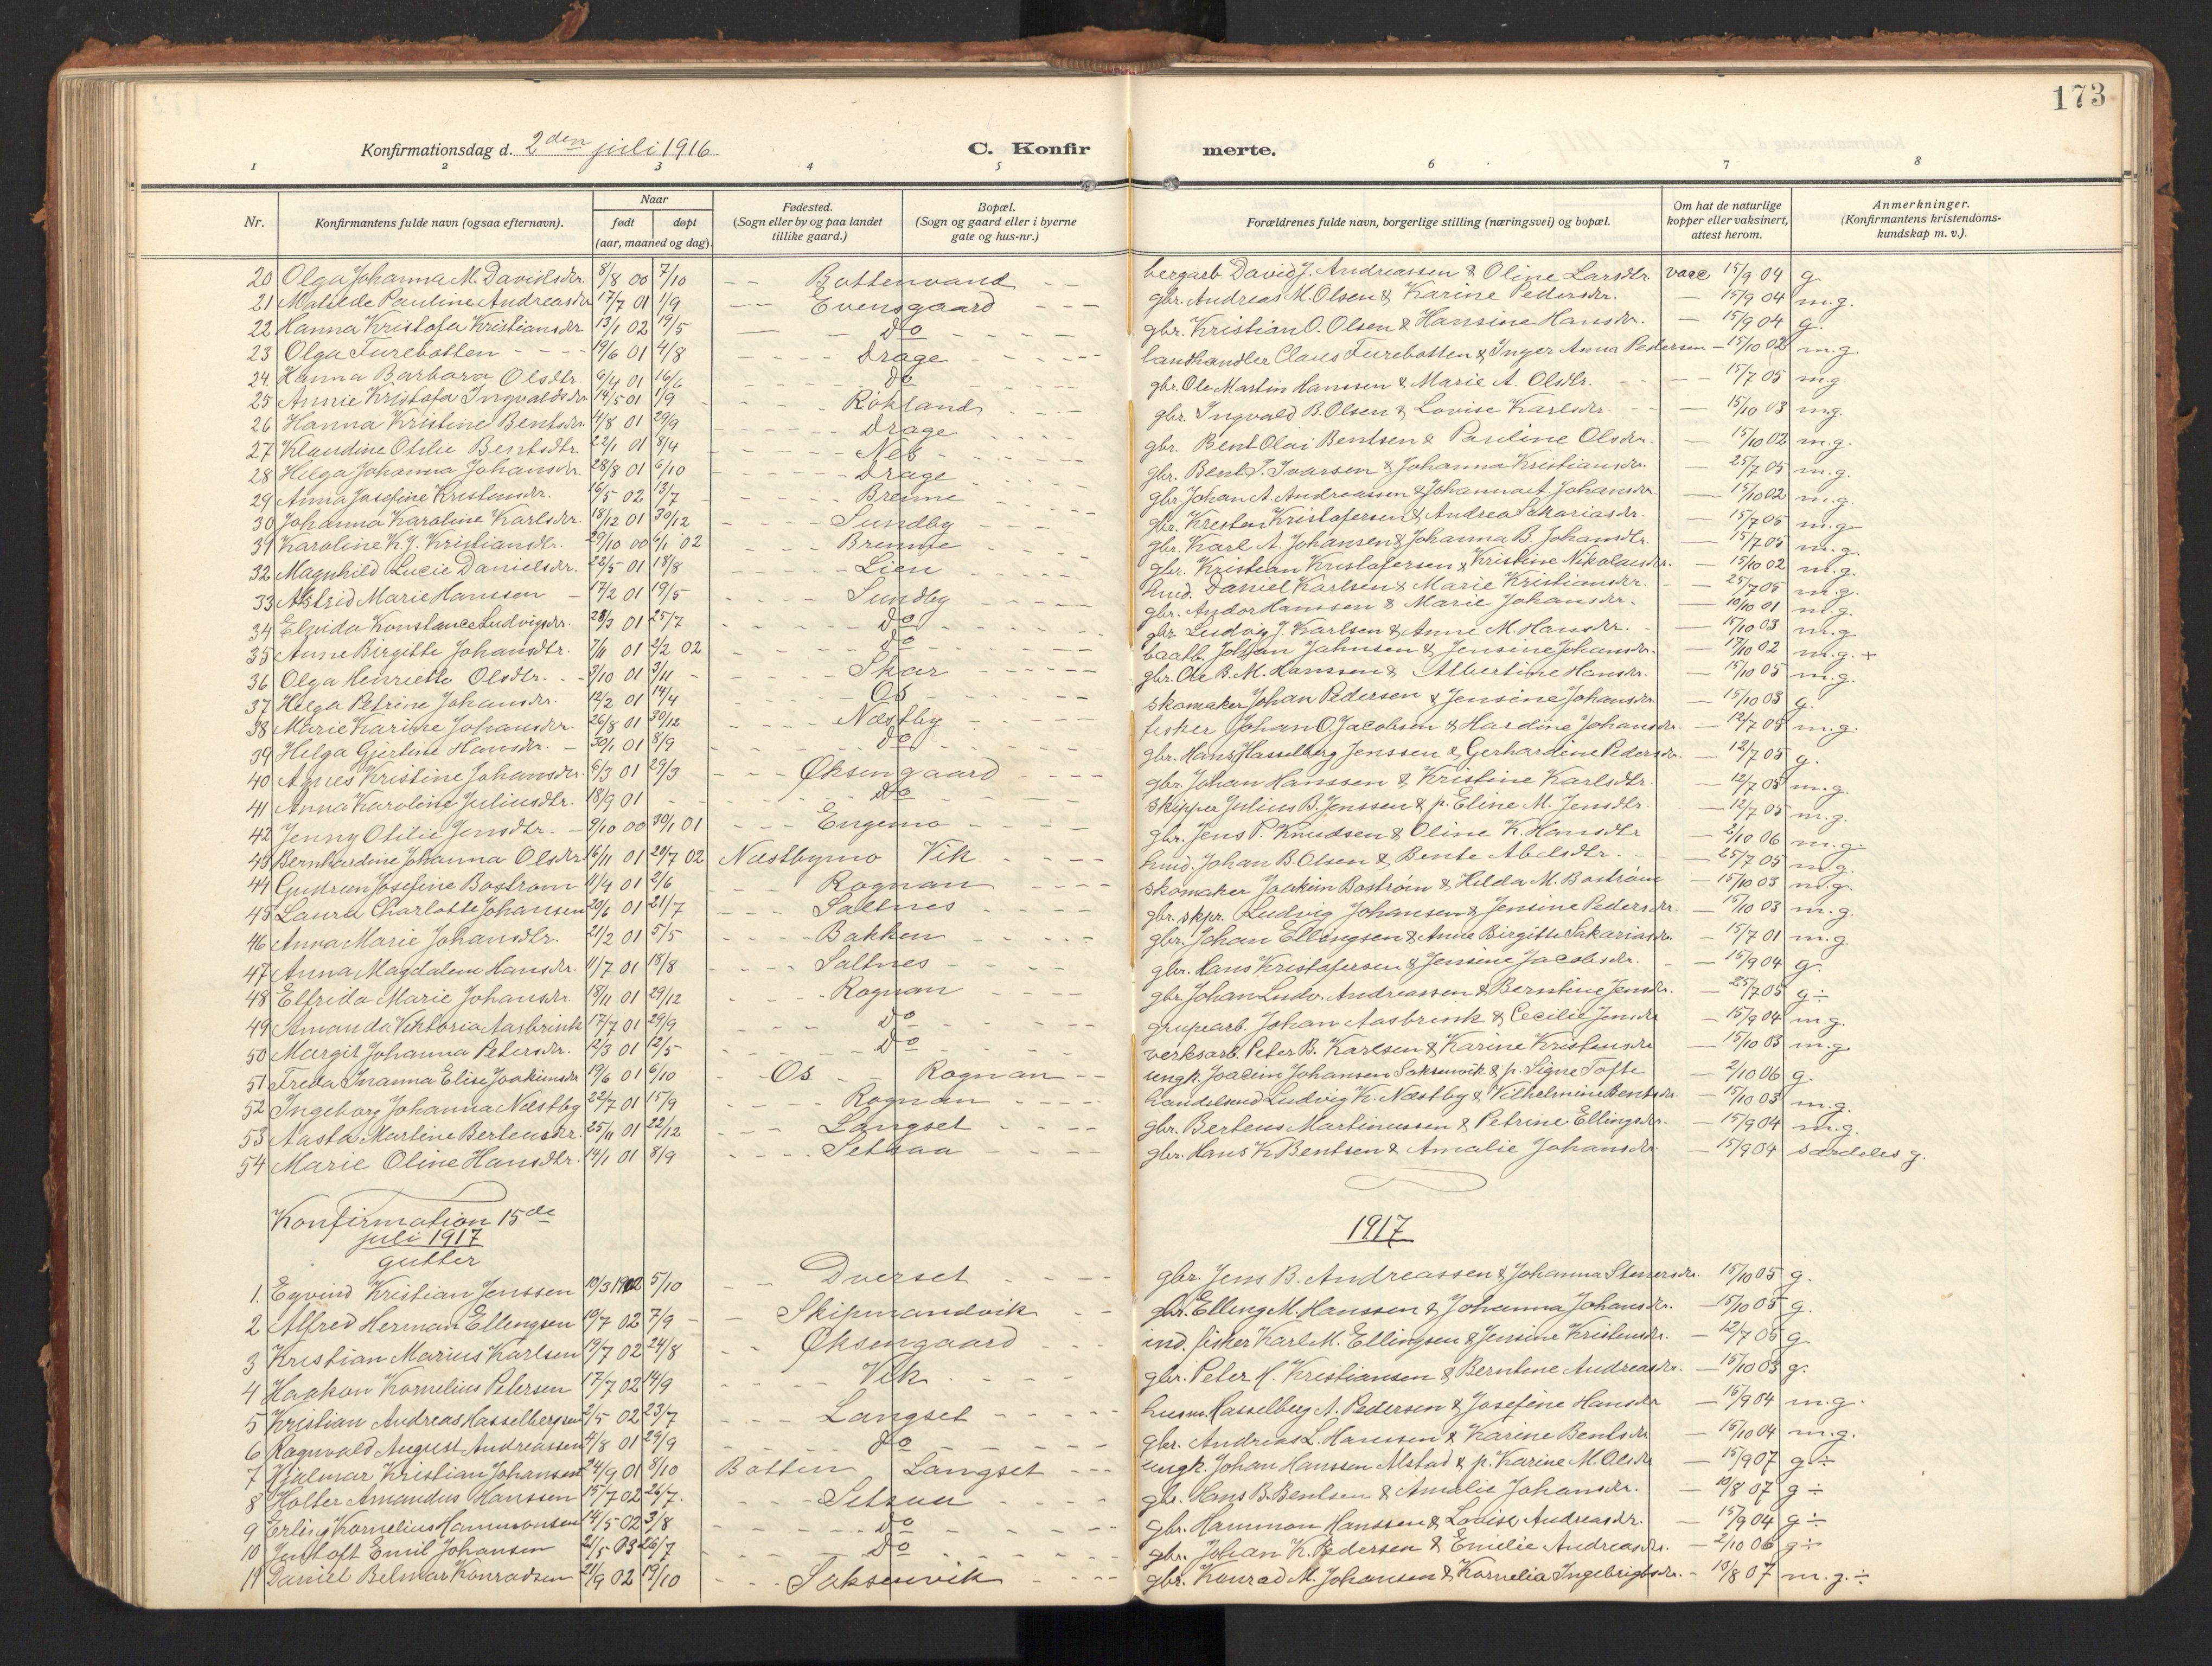 173
Konfirmationsdag d. 2den juli 1916
C. Konfirmerte.
1 2 3 4 5 6 7 8
Nr. Konfirmantens fulde navn (ogsaa efternavn). Naar født døpt (aar, maaned og dag). Fødested. (Sogn eller by og paa landet tillike gaard.) Bopæl. (Sogn og gaard eller i byerne gate og hus-nr.) Forældrenes fulde navn, borgerlige stilling (næringsvei) og bopæl. Om hat de naturlige kopper eller vaksinert, attest herom. Anmerkninger. (Konfirmantens kristendomskundskap m. v.).
20 Olga Johanna M. Davidsdtr. 8/8 00 7/10 Bottenvand bergarb. David J. Andreassen & Oline Larsdtr. vacc 15/9 04 g.
21 Mathilde Pauline Andreasdtr 17/7 01 1/9 Evensgaard gbr. Andreas M. Olsen & Karine Pedersdtr. — 15/9 04 m.g.
22 Hanna Kristofa Kristiansdtr 13/1 02 19/5 Do gbr. Kristian O. Olsen & Hansine Hansdtr. — 15/9 04 g.
23 Olga Furebotten 19/6 01 4/8 Drage landhandler Claus Furebotten & Inger Anna Pedersen — 15/10 02 m.g.
24 Hanna Barbara Olsdtr 6/4 01 16/6 Do gbr. Ole Martin Hansen & Marie A. Olsdtr. — 15/7 05 m.g.
25 Annie Kristofa Ingvaldsdtr 14/5 01 1/9 Rökland gbr. Ingvald B. Olsen & Lovise Karlsdtr. — 15/10 03 m.g.
26 Hanna Kristine Bentsdtr 4/8 01 29/9 Drage gbr. Bent Olai Bentsen & Pauline Olsdtr. — 15/10 02 m.g.
27 Klaudine Otilie Bentsdtr. 22/1 01 8/4 Nes gbr. Bent P. Ivarsen & Johanna Kristiansdtr. — 25/7 05 m.g.
28 Helga Johanna Johansdtr. 28/8 01 6/10 Drage gbr. Johan A. Andreassen & Johanna A. Johansdtr. — 15/10 02 m.g.
29 Anna Josefine Kristensdtr. 16/5 02 13/7 Brenne gbr. Kresten Kristofersen & Andrea Sakariasdtr. — 15/7 05 m.g.
30 Johanna Karoline Karlsdtr. 18/12 01 30/12 Sundby gbr. Karl A. Johansen & Johanna B. Johansdtr. — 15/7 05 m.g.
31 Karoline K. J. Kristiansdtr. 29/10 00 6/1 02 Brenne gbr. Kristian Kristofersen & Kristine Nikolaisdtr. — 15/10 02 m.g.
32 Magnhild Lucie Danielsdtr. 22/5 01 18/8 Lien husd. Daniel Karlsen & Marie Kristiansdtr. — 25/7 05 m.g.
33 Astrid Marie Hanssen 17/2 01 19/5 Sundby gbr. Andor Hanssen & Marie Johansdtr. — 10/10 01 m.g.
34 Elvida Konstance Ludvigsdtr. 28/3 01 25/7 Do gbr. Ludvig J. Karlsen & Anne M. Hansdtr. — 15/10 03 m.g.
35 Anne Birgitte Johansdtr. 7/11 01 2/2 02 Do baatb. Johan Jahnsen & Jensine Johansdtr. — 17/10 02 m.g. +
36 Olga Henriette Olsdtr. 3/10 01 3/11 Skar gbr. Ole B. M. Hanssen & Albertine Hansdtr. — 15/10 05 m.g.
37 Helga Petrine Johansdtr. 12/2 01 14/4 Os skomaker Johan Pedersen & Jensine Johansdtr — 15/10 03 g.
38 Marie Karine Johansdtr. 26/8 01 30/12 Næstby fisker Johan O. Jacobsen & Hardine Johansdtr. — 12/7 05 m.g.
39 Helga Gjertine Hansdtr. 30/1 01 8/9 Do gbr. Hans Hasselberg Jenssen & Gerhardine Pedersdtr — 12/7 05 g.
40 Agnes Kristine Johansdtr. 6/3 01 29/3 Øksengaard gbr. Johan Hanssen & Kristine Karlsdtr. — 12/7 05 m.g.
41 Anna Karoline Juliusdtr. 18/9 01 Do skipper Julius B. Jenssen & p. Eline M. Jensdtr. — 12/7 05 m.g.
42 Jenny Otilie Jensdtr. 9/10 00 30/1 01 Engemo gbr. Jens P. Knudsen & Oline K. Hansdtr — 2/10 06 m.g.
43 Bernhardine Johanna Olsdtr 16/11 01 20/7 02 Næstbymo Vik husd. Johan B. Olsen & Bente Abelsdtr. — 25/7 05 m.g.
44 Gudrun Josefine Bostrøm 11/4 01 2/6 Rognan skomaker Joakim Boström & Hilda M. Boström — 15/10 03 m.g.
45 Laura Charlotte Johansen 20/6 01 21/7 Saltnes gbr. skpr. Ludvig Johansen & Jensine Pedersdtr. — 15/10 03 m.g.
46 Anna Marie Johansdtr. 21/2 01 5/5 Bakken gbr. Johan Ellingsen & Anne Birgitte Sakariasdtr. — 15/7 01 m.g.
47 Anna Magdalene Hansdtr. 11/7 01 18/8 Saltnes gbr. Hans Kristofersen & Jensine Jacobsdtr. — 15/9 04 g.
48 Elfrida Marie Johansdtr. 18/11 01 29/12 Rognan gbr. Johan Ludv. Andreassen & Berntine Jensdtr. — 25/7 05 g ÷
49 Amanda Viktoria Aasbrink 17/7 01 29/9 Do grupearb. Johan Aasbrink & Cecilie Jensdtr — 15/9 04 m.g.
50 Margit Johanna Petersdtr. 12/3 01 12/5 Do verksarb. Peter B. Karlsen & Karine Kristensdtr — 15/10 03 m.g.
51 Freda Inanna Elise Joakimsdtr 19/6 01 6/10 Os Rognan ungk. Joacim Johansen Saksenvik & p. Signe Tofte — 2/10 06 g.
52 Ingeborg Johanna Næstby 22/7 01 15/9 Rognan handelsmd Ludvig K. Næstby & Vilhelmine Bentsdtr. — 15/10 03 m.g.
53 Aasta Martine Berteusdtr. 25/11 01 22/12 Langset gbr. Berteus Martinussen & Petrine Ellingsdtr. — 15/9 04 m.g.
54 Marie Oline Hansdtr. 14/1 01 8/9 Setsaa gbr. Hans K. Bentsen & Amalie Johansdtr — 15/9 04 særdeles g.
Konfirmation 15de juli 1917
1917
gutter
1. Eyvind Kristian Jenssen 10/3 1902 5/10 Dverset gbr. Jens B. Andreassen & Johanna Steinersdtr. 15/10 05 g.
2 Alfred Herman Ellingsen 19/7 02 7/9 Skipmandvik gbr. Elling M. Hanssen & Johanna Johansdtr. — 15/10 05 g.
3 Kristian Marius Karlsen 19/7 02 24/8 Øksengaard ind. fisker Karl M. Ellingsen & Jensine Kristensdtr. — 12/7 05 g
4 Haakon Kornelius Petersen 17/7 02 14/9 Vik gbr. Peter H. Kristiansen & Berntine Andreasdtr. — 15/10 03 g.
5 Kristian Andreas Hasselbergsen 2/5 02 23/7 Langset husm. Hasselberg A. Pedersen & Josefine Hansdtr — 15/9 04 m.g.
6 Ragnvald August Andreassen 4/8 01 29/9 Do gbr. Andreas L. Hanssen & Karine Bentsdtr — 15/10 04 m.g.
7 Hjalmar Kristian Johansen 24/9 01 8/10 Botten Langset ungk. Johan Hanssen Alstad & p. Karine M. Olsdtr — 15/9 07 g ÷
8 Holter Amandus Hanssen 15/7 02 26/7 Setsaa gbr. Hans B. Bentsen & Amalie Johansdtr. — 10/8 07 g ÷
9 Erling Kornelius Hammonsen 14/5 02 3/8 Do gbr. Hammon Hanssen & Lovise Andreasdtr. — 15/9 04 g ÷
10 Justoft Emil Johansen 21/5 03 26/7 Do gbr. Johan K. Pedersen & Emilie Andreasdtr. — 2/10 06 g ÷
11 Daniel Belmar Konradsen 21/9 02 19/10 Saksenvik gbr. Konrad M. Johansen & Kornelia Ingebrigtsdtr. — 10/8 07 m.g. ÷